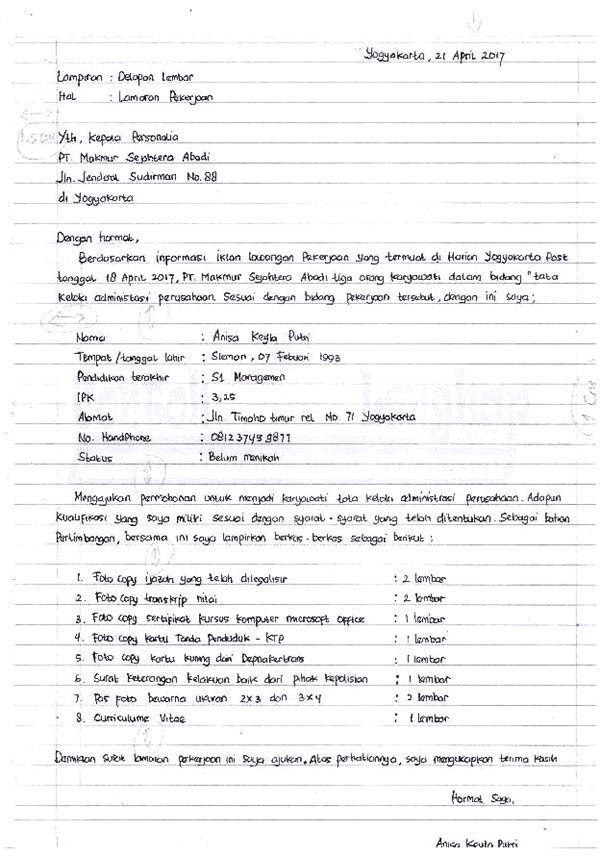 Yogyakarta, 21 April 2017
Lampiran : Delapan Lembar
Hal : Lamaran Pekerjaan
1.5 cm
Yth, Kepala Personalia
PT. Makmur Sejahtera Abadi
Jln. Jenderal Sudirman No. 88
di Yogyakarta
Dengan hormat,
Berdasarkan informasi iklan lowongan Pekerjaan yang termuat di Harian Yogyakarta Post
tanggal 18 April 2017, PT. Makmur Sejahtera Abadi tiga orang karyawati dalam bidang "tata
kelola administasi perusahaan. Sesuai dengan bidang pekerjaan tersebut, dengan ini saya;
Nama : Anisa Keyla Putri
Tempat / tanggal lahir : Sleman, 07 Febuari 1993
Pendidikan terakhir : S1 Managemen
IPK : 3,25
Alamat : Jln. Timoho timur rel No. 71 Yogyakarta
No. Handphone : 081237459877
Status : Belum menikah
Mengajukan permohonan untuk menjadi karyawati tata kelola administrasi perusahaan. Adapun
kualifikasi yang saya miliki sesuai dengan syarat - syarat yang telah ditentukan. Sebagai bahan
Pertimbangan, bersama ini saya lampirkan berkas - berkas sebagai berikut :
1. Foto copy ijazah yang telah dilegalisir : 2 lembar
2. Foto copy transkrip nilai : 2 lembar
3. Foto copy sertipikat kursus komputer microsoft office : 1 lembar
4. Foto copy Kartu Tanda Penduduk - KTP : 1 lembar
5. Foto copy kartu kuning dari Depnakertrans : 1 lembar
6. Surat keterangan kelakuan baik dari pihak kepolisian : 1 lembar
7. Pas foto bewarna ukuran 2x3 dan 3x4 : 2 lembar
8. Curriculume Vitae : 1 lembar
Demikian surat lamaran pekerjaan ini saya ajukan. Atas perhatiannya, saya mengucapkan terima kasih
Hormat Saya,
Anisa Keyla Putri